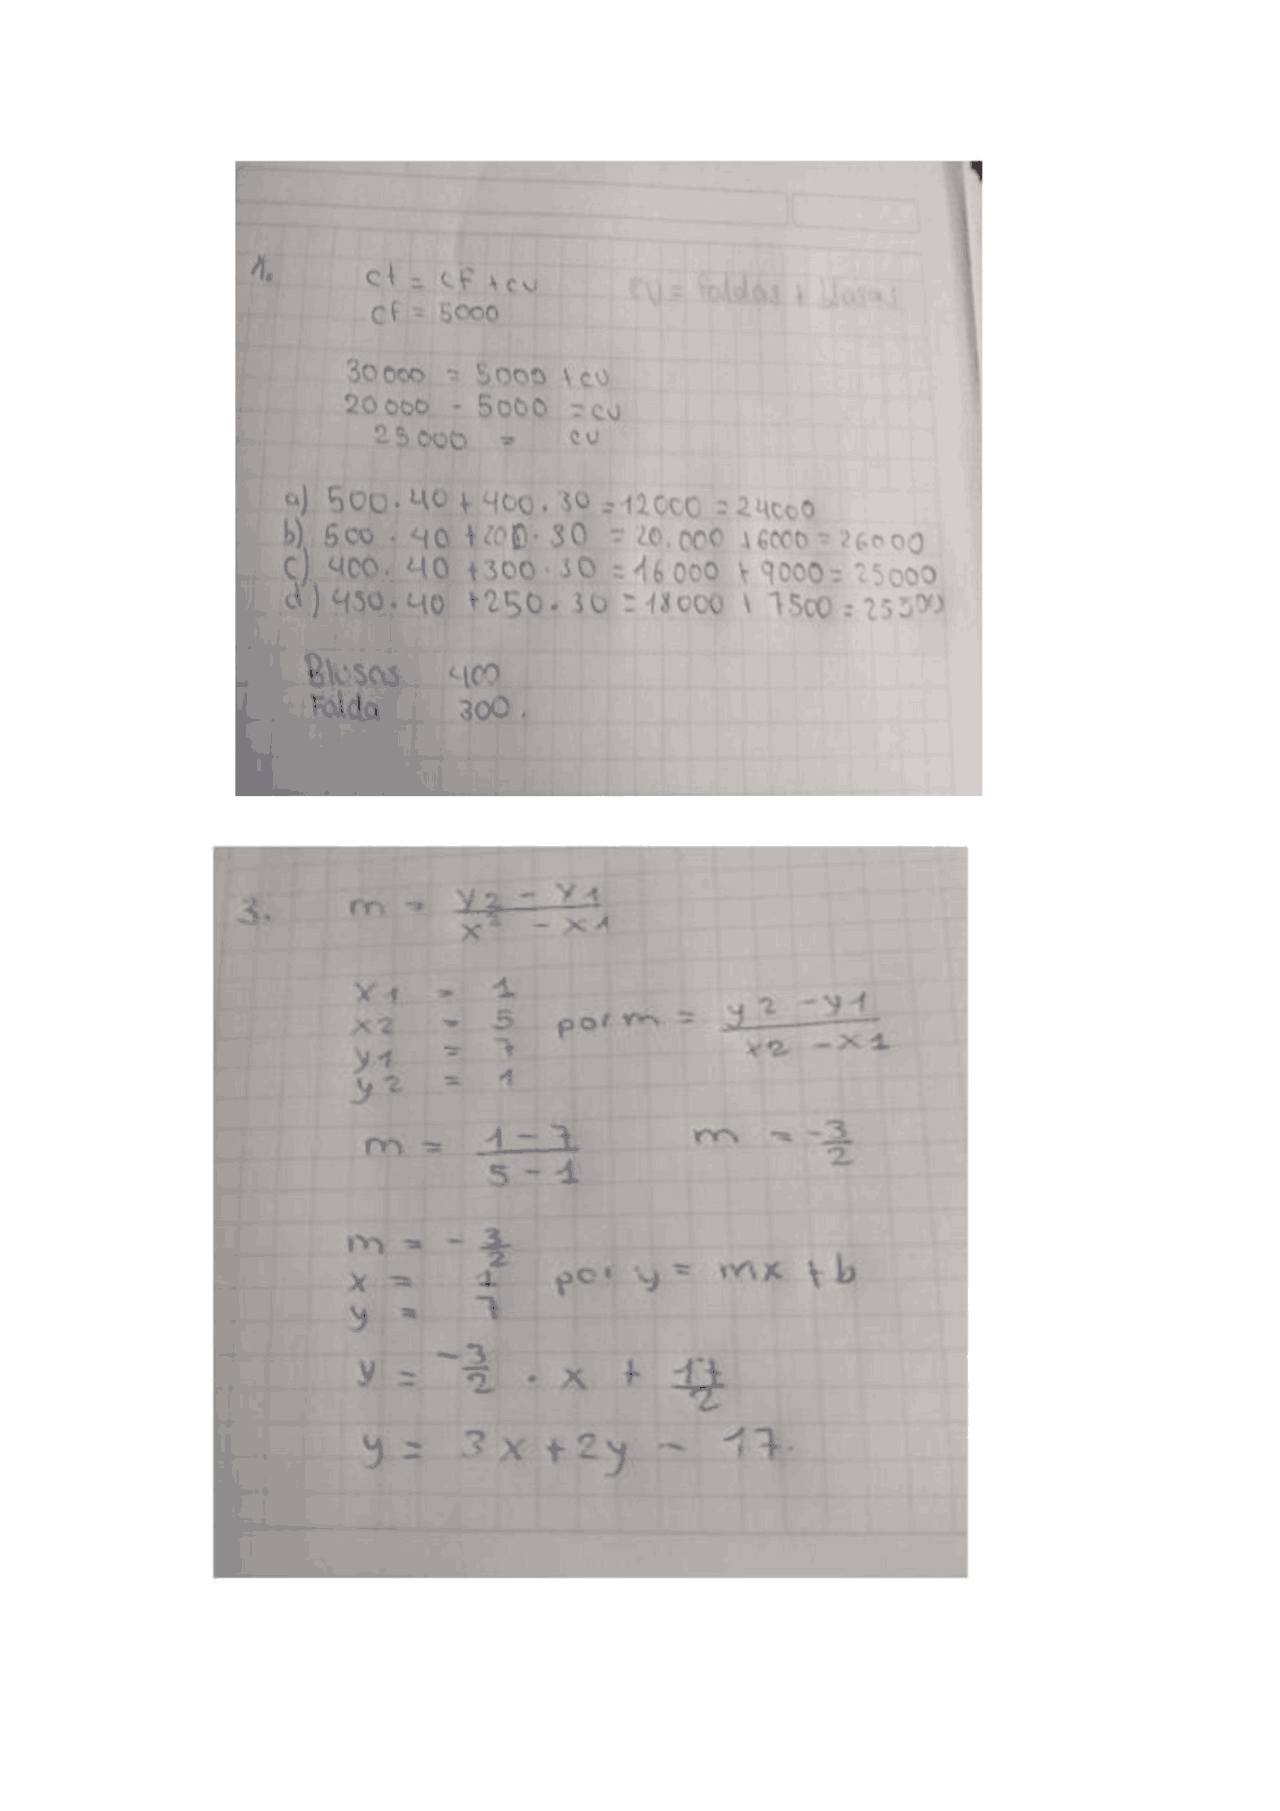 1. ct = cf + cv cv = faldas + blusas
cf = 5000
30000 = 5000 + cv
20000 - 5000 = cv
25000 = cv
a) 500.40 + 400.30 = 12000 = 24000
b) 500.40 + 200.30 = 20.000 + 6000 = 26000
c) 400.40 + 300.30 = 16000 + 9000 = 25000
d) 450.40 + 250.30 = 18000 + 7500 = 25500
Blusas 400
Falda 300.
3. m = y2 - y1 / x2 - x1
x1 = 1
x2 = 5 por m = y2 - y1 / x2 - x1
y1 = 7
y2 = 1
m = 1 - 7 / 5 - 1 m = -3/2
m = - 3/2
x = 1 por y = mx + b
y = 7
y = -3/2 . x + 17/2
y = 3x + 2y - 17.